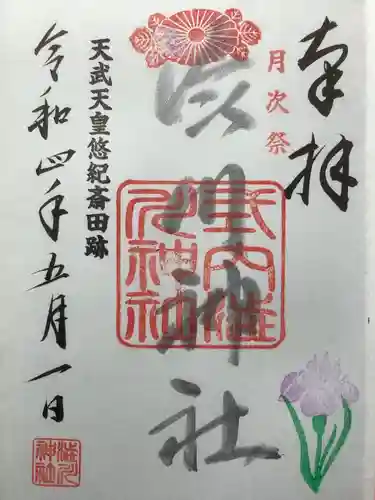 奉拝
月次祭
渋川神社
式内澁
川神社
天武天皇悠紀斎田跡
令和四年五月一日
澁川
神社